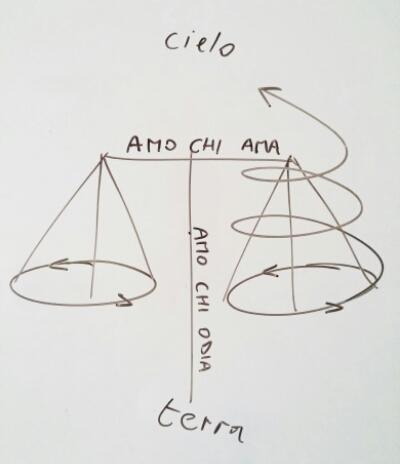 cielo
AMO CHI AMA
AMO CHI ODIA
terra